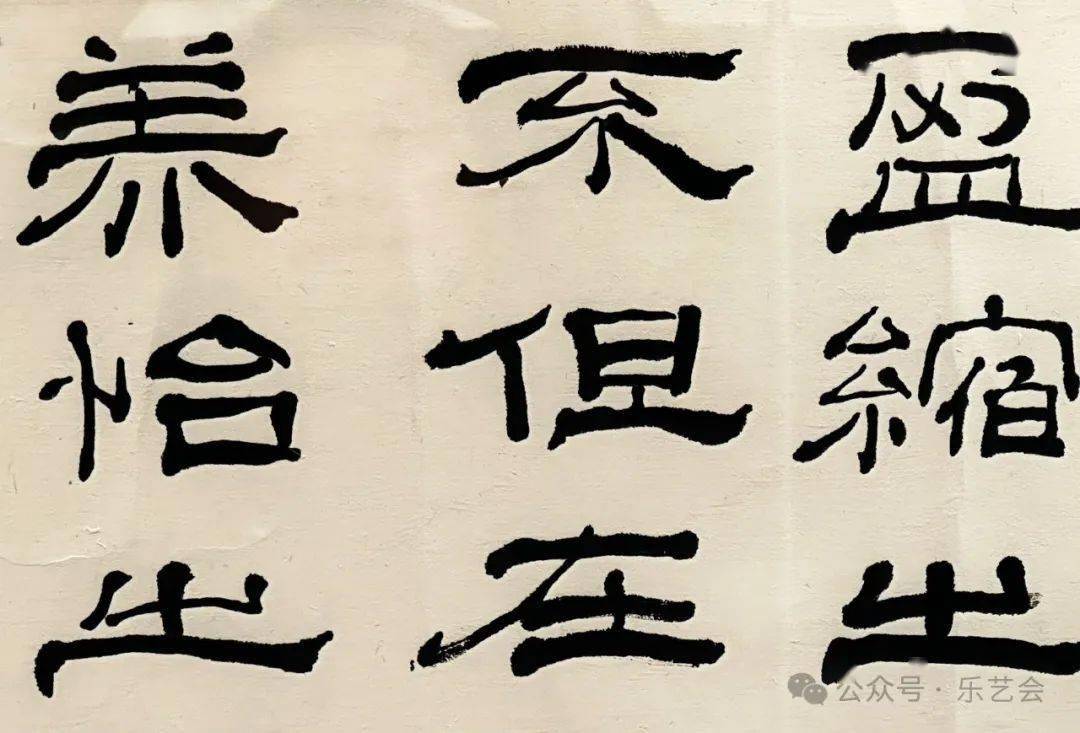 盈縮之
不但在
养怡之
公众号 · 乐艺会